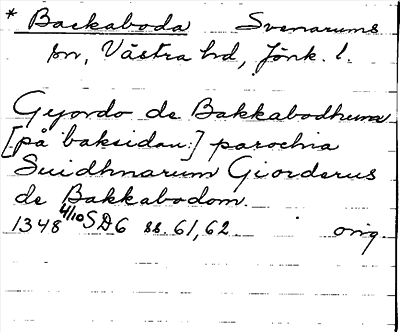 * Backaboda Svenarums
sn, Västra hd, Jönk. l.
Gyordo de Bakkabodhum
[på baksidan:] parochia
Suidhnarum Giorderus
de Bakkabodom.
1348 4/10 SD6 ss. 61, 62 orig.